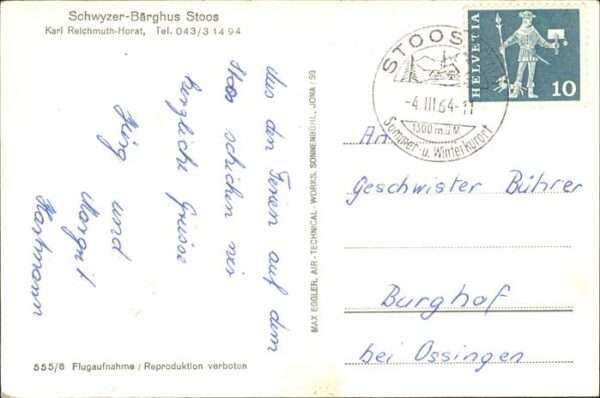 Schwyzer-Bärghus Stoos
Karl Reichmuth-Horat, Tel. 043/3 14 94
Aus den Ferien auf dem
Stoos schicken wir
herzliche Grüsse
Jürg und
Margrit
Hartmann
555/8 Flugaufnahme / Reproduktion verboten
MAX EGGLER, AIR-TECHNICAL-WORKS, SONNENBÜHL, JONA / SG
STOOS
-4.III.64-11
1300 m.ü.M.
Sommer- u. Winterkurort
HELVETIA
10
An
Geschwister Bührer
Burghof
bei Ossingen